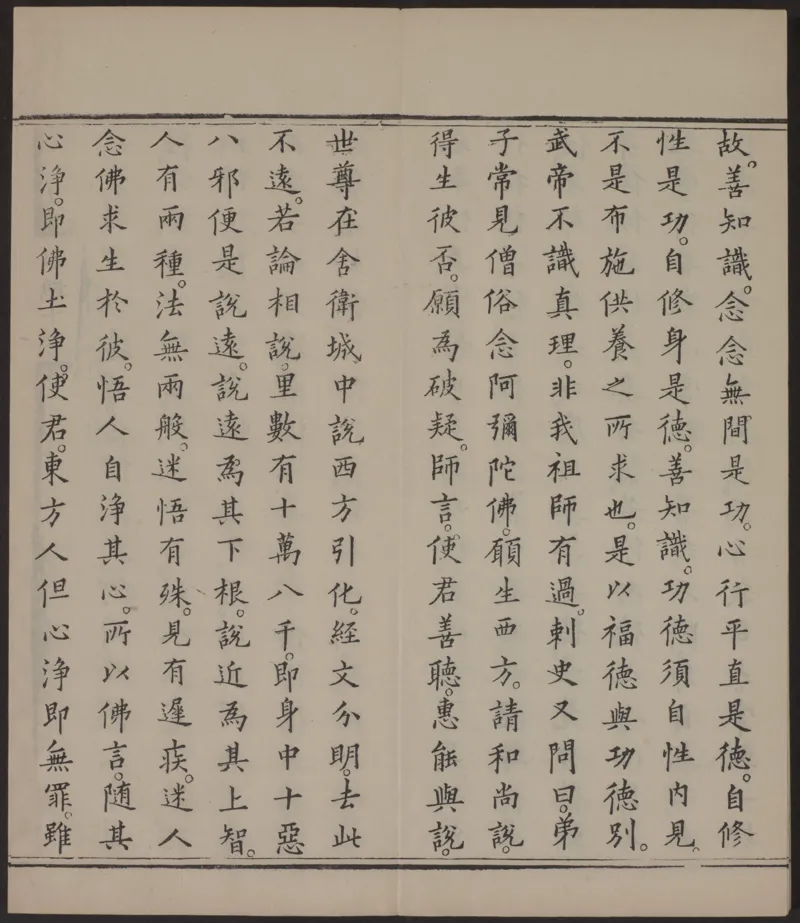 故。善知識。念念無間是功。心行平直是德。自修
性是功。自修身是德。善知識。功德須自性內見。
不是布施供養之所求也。是以福德與功德別。
武帝不識真理。非我祖師有過。刺史又問曰。弟
子常見僧俗念阿彌陀佛。願生西方。請和尚說。
得生彼否。願為破疑。師言。使君善聽。惠能與說。
世尊在舍衛城中說西方引化。經文分明。去此
不遠。若論相說。里數有十萬八千。即身中十惡
八邪便是說遠。說遠為其下根。說近為其上智。
人有兩種。法無兩般。迷悟有殊。見有遲疾。迷人
念佛求生於彼。悟人自淨其心。所以佛言。隨其
心淨。即佛土淨。使君。東方人但心淨即無罪。雖